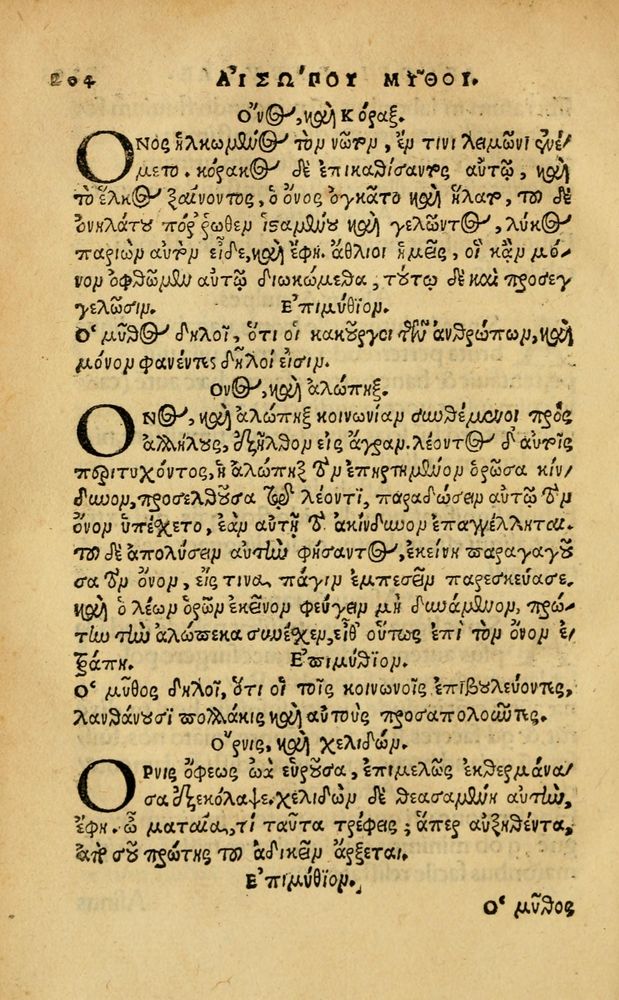 204 ΑἸΣΩ΄ΠΟΥ ΜΥ͂ΘΟΙ.
Ὄνος, καὶ Κόραξ.
ΟΝος ἡλκωμένος τὸν νῶτον, ἔν τινι λειμῶνι ἐνέ-
μετο. κόρακος δὲ ἐπικαθίσαντος αὐτῷ, καὶ
τὸ ἕλκος ξαίνοντος, ὁ ὄνος ὀγκᾶτο καὶ ἥλατο, τοῦ δὲ
ὀνηλάτου πόῤῥωθεν ἱσαμένου καὶ γελῶντος, λύκος
παριὼν αὐτὸν εἶδε, καὶ ἔφη. ἄθλιοι ἡμεῖς, οἳ κἂν μό-
νον ὀφθῶμεν αὐτῷ διωκόμεθα, τούτῳ δὲ καὶ προσεγ
γελῶσιν. Ἐπιμύθιον.
Ὁ μῦθος δηλοῖ, ὅτι οἱ κακοῦργοι τῶν ἀνθρώπων, καὶ
μόνον φανέντες δῆλοί εἰσιν.
Ὄνος, καὶ ἀλώπηξ.
ΟΝος, καὶ ἀλώπηξ κοινωνίαν συνθέμενοι πρὸς
ἀλλήλους, ἐξῆλθον εἰς ἄγραν. λέοντος δ' αὐτοῖς
περιτυχόντος, ἡ ἀλώπηξ τὸν ἐπηρτημένον ὁρῶσα κίν-
δυνον, προσελθοῦσα τῷ λέοντι, παραδώσειν αὐτῷ τὸν
ὄνον ὑπέσχετο, ἐὰν αὐτῇ τὸ ἀκίνδυνον ἐπαγγέλληται.
τοῦ δὲ ἀπολύσειν αὐτὴν φήσαντος, ἐκείνη παραγαγοῦ
σα τὸν ὄνον, εἴς τινα πάγην ἐμπεσεῖν παρεσκεύασε.
καὶ ὁ λέων ὁρῶν ἐκεῖνον φεύγειν μὴ δυνάμενον, πρώ-
την τὴν ἀλώπεκα συνέσχεν, εἶθ' οὕτως ἐπὶ τὸν ὄνον ἐ-
τράπη. Ἐπιμύθιον.
Ὁ μῦθος δηλοῖ, ὅτι οἱ τοῖς κοινωνοῖς ἐπιβουλεύοντες,
λανθάνουσι πολλάκις καὶ αὐτοὺς προσαπολοῦντες.
Ὄρνις, καὶ χελιδών.
ΟΡνις ὄφεως ὠὰ εὑροῦσα, ἐπιμελῶς ἐκθερμάνα-
σα ἐξεκόλαψε. χελιδὼν δὲ θεασαμένη αὐτὴν,
ἔφη. ὦ ματαία, τί ταῦτα τρέφεις; ἅπερ αὐξηθέντα,
ἀπὸ σοῦ πρώτης τοῦ ἀδικεῖν ἄρξεται.
Ἐπιμύθιον.
Ὁ μῦθος